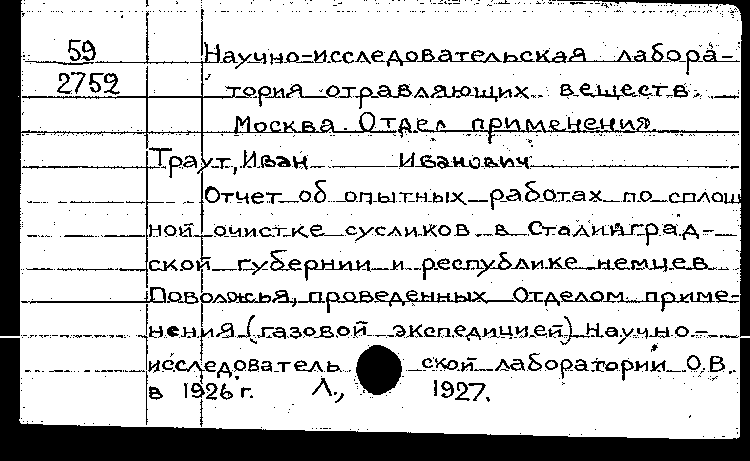 59
2752
Научно-исследовательская лабора-
тория отравляющих веществ.
Москва. Отдел применения
Траут, Иван Иванович
Отчет об опытных работах по сплош
ной очистке сусликов в Сталинград-
ской губернии и республике немцев
Поволжья, проведенных Отделом приме-
нения (газовой экспедицией) Научно-
исследователь ской лаборатории О.В.
в 1926 г. Л., 1927.